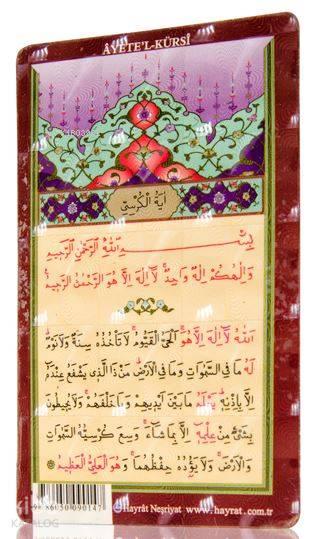 ÂYETE'L-KÜRSÎ
اٰيَةُ الْكُرْسِيّ
بِسْمِ اللّٰهِ الرَّحْمٰنِ الرَّحِيمِ
وَاِلٰهُكُمْ اِلٰهٌ وَاحِدٌ لَا اِلٰهَ اِلَّا هُوَ الرَّحْمٰنُ الرَّحِيمُ
اَللّٰهُ لَا اِلٰهَ اِلَّا هُوَ اَلْحَيُّ الْقَيُّومُ لَا تَأْخُذُهُ سِنَةٌ وَلَا نَوْمٌ
لَهُ مَا فِي السَّمٰوَاتِ وَمَا فِي الْاَرْضِ مَنْ ذَا الَّذِي يَشْفَعُ عِنْدَهُ
اِلَّا بِاِذْنِهِ يَعْلَمُ مَا بَيْنَ اَيْدِيهِمْ وَمَا خَلْفَهُمْ وَلَا يُحِيطُونَ
بِشَيْءٍ مِنْ عِلْمِهِ اِلَّا بِمَا شَاءَ وَسِعَ كُرْسِيُّهُ السَّمٰوَاتِ
وَالْاَرْضَ وَلَا يَؤُدُهُ حِفْظُهُمَا وَهُوَ الْعَلِيُّ الْعَظِيمُ
9786050090147
Hayrât Neşriyat www.hayrat.com.tr
KATALOG